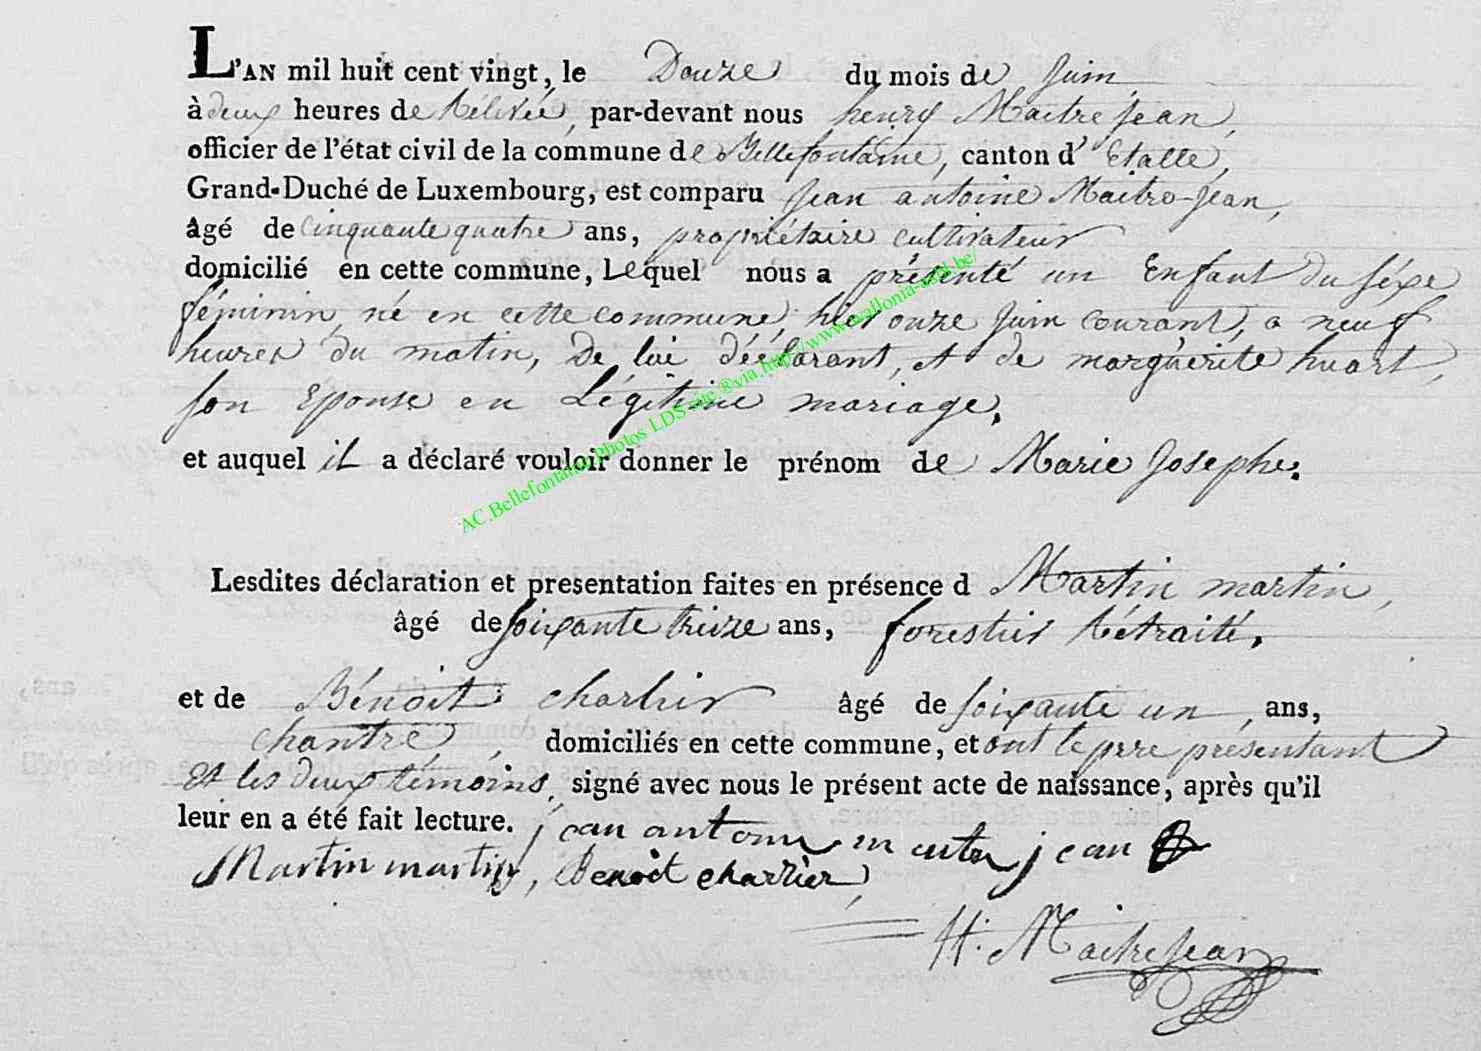 L'AN mil huit cent vingt, le Douze du mois de Juin
à deux heures de Rélévée, par-devant nous henry Maitrejean,
officier de l'état civil de la commune de Bellefontaine, canton d'Etalle,
Grand-Duché de Luxembourg, est comparu Jean antoine Maitre-Jean,
âgé de cinquante quatre ans, propriétaire cultivateur
domicilié en cette commune, Lequel nous a présenté un Enfant du séxe
féminin, né en cette commune, hier onze Juin courant, a neuf
heures du matin, De lui déclarant, et de marguerite huart,
son Epouse en Légitime mariage.
et auquel iL a déclaré vouloir donner le prénom de Marie Josephe.
Lesdites déclaration et presentation faites en présence d Martin martin,
âgé de soixante treize ans, forestier Rétraité.
et de Bénoit charlier âgé de soixante un, ans,
chantre, domiciliés en cette commune, et ont le père présentant
et les deux témoins, signé avec nous le présent acte de naissance, après qu'il
leur en a été fait lecture. jean antoine maitre jean
Martin martin, Benoit charlier,
H. Maitrejean
AC.Bellefontaine.Photos LDS-site.®via.http://www.wallonia-asbl.be/